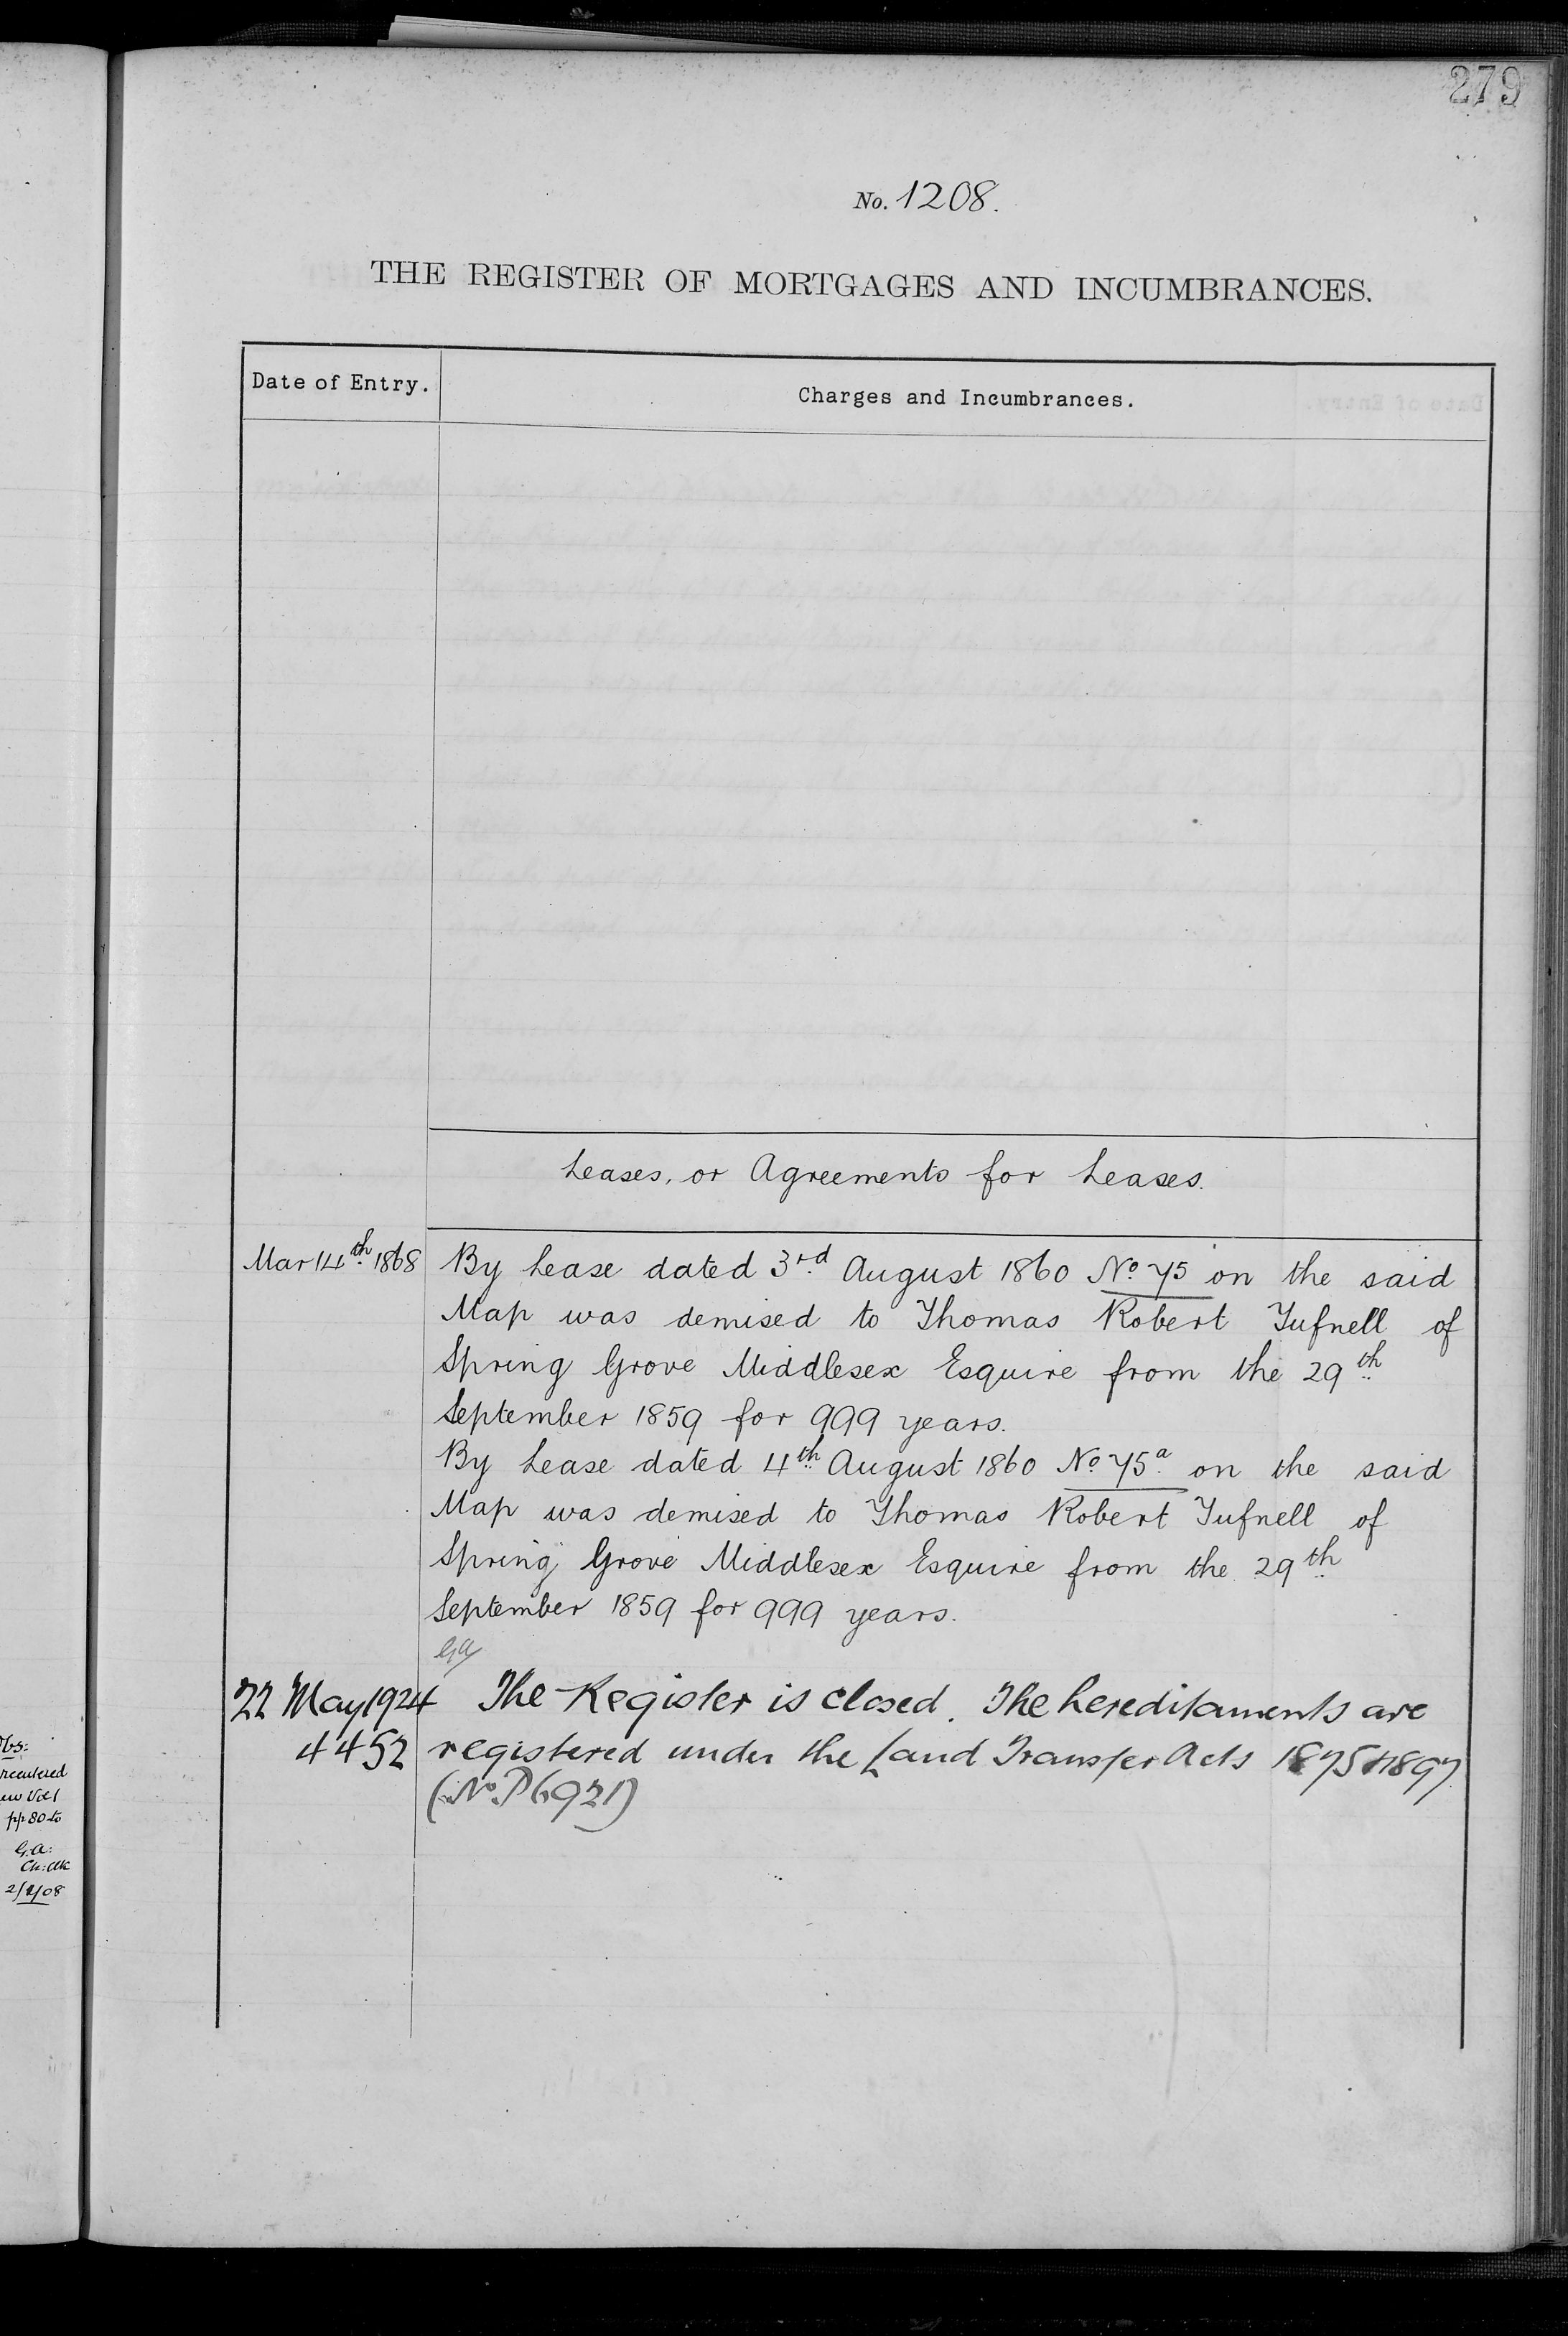 279
No. 1208.
THE REGISTER OF MORTGAGES AND INCUMBRANCES.
Date of Entry.
Charges and Incumbrances.
Leases, or Agreements for Leases.
Mar 14th 1868
By Lease dated 3rd August 1860 No 75 on the said
Map was demised to Thomas Robert Tufnell of
Spring Grove Middlesex Esquire from the 29th
September 1859 for 999 years.
By Lease dated 4th August 1860 No 75a on the said
Map was demised to Thomas Robert Tufnell of
Spring Grove Middlesex Esquire from the 29th
September 1859 for 999 years.
GA
22 May 1924 The Register is closed. The hereditaments are
4452 registered under the Land Transfer Acts 1875 & 1897
(No. P6921)
pp 80 to
G.A:
2/1/08